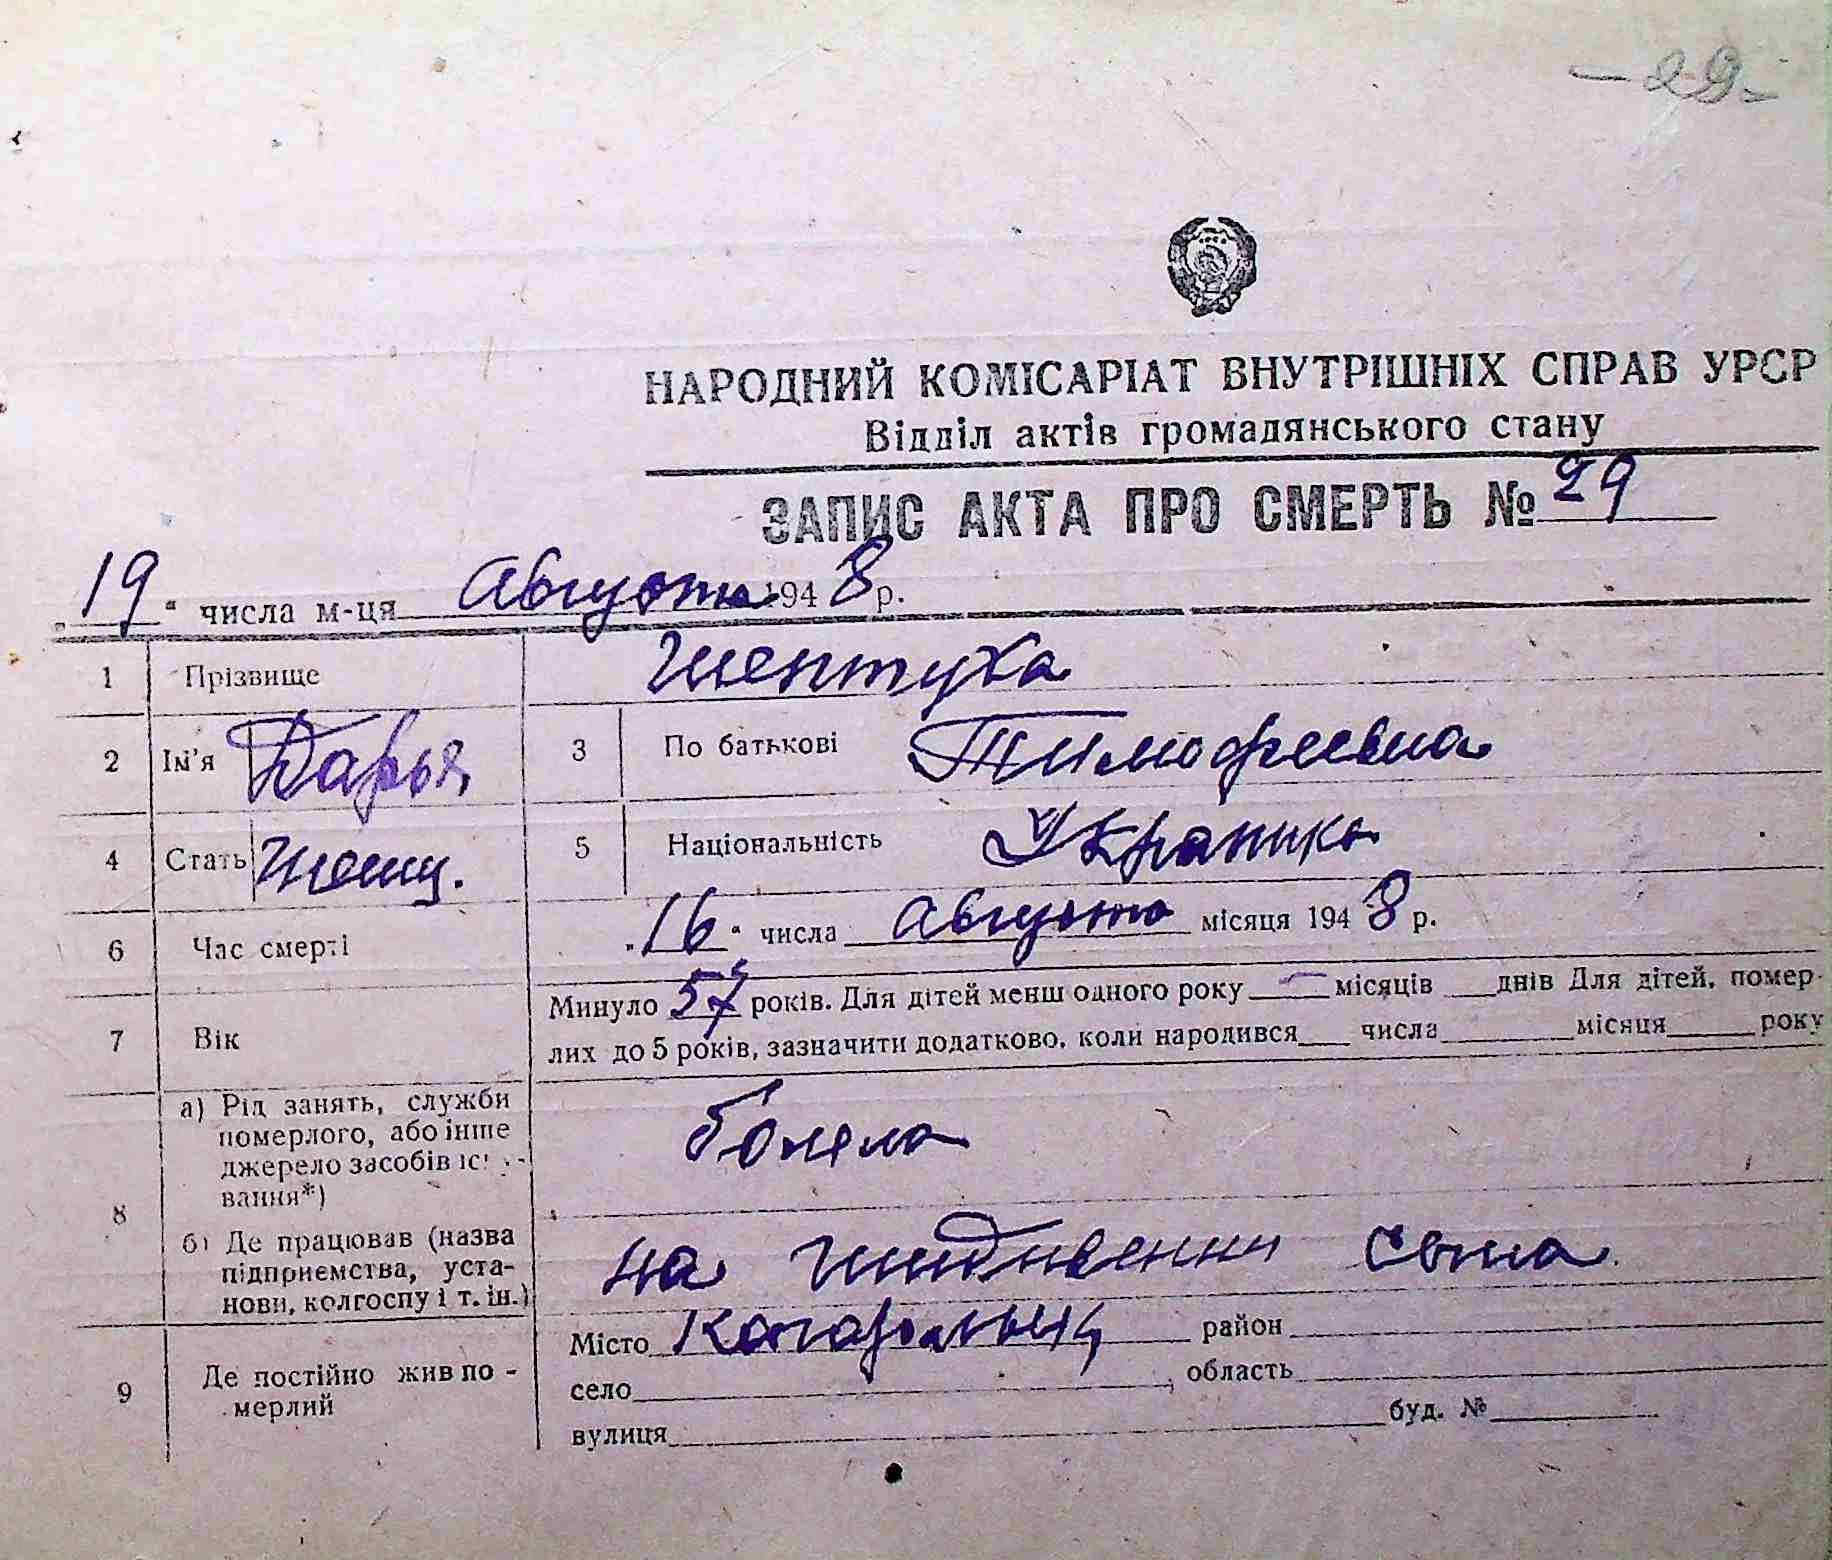 - 29 -
НАРОДНИЙ КОМІСАРІАТ ВНУТРІШНІХ СПРАВ УРСР
Відділ актів громадянського стану
ЗАПИС АКТА ПРО СМЕРТЬ № 29
„19“ числа м-ця Августа 1948 р.
1 Прізвище Шептуха
2 Ім'я Дарья 3 По батькові Тимофеевна
4 Стать Женщ. 5 Національність Украинка
6 Час смерті „16“ числа Августа місяця 1948 р.
7 Вік Минуло 57 років. Для дітей менш одного року — місяців ___ днів Для дітей, помер-
лих до 5 років, зазначити додатково, коли народився ___ числа ___ місяця ___ року
8 а) Рід занять, служби
померлого, або інше
джерело засобів існу-
вання*) болела
б) Де працював (назва
підприємства, уста-
нови, колгоспу і т. ін.) на иждивении сына.
9 Де постійно жив по-
мерлий
Місто Кагарлык район
село , область
вулиця буд. №